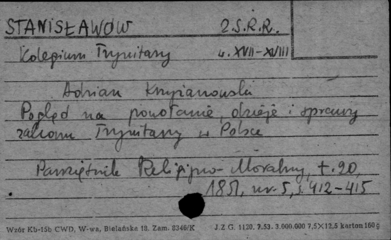 STANISŁAWÓW Z.S.R.R.
Kolegium Trynitarzy w. XVII-XVIII
Adrian Krzyżanowski
Pogląd na powołanie, dzieje i sprawy
zakonu Trynitarzy w Polsce
Pamiętnik Religijno-Moralny, t. 20,
1851, nr 5, s 412-415
Wzór Kb-15b CWD, W-wa, Bielańska 18. Zam. 3346/K J.Z.G. 1120. 7.53. 3.000.000 7,5×12,5 karton 160 g